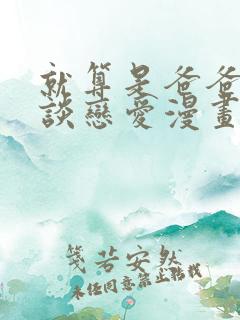 就算是爸爸
談戀愛漫畫
箋若安然
未经同意禁止转载